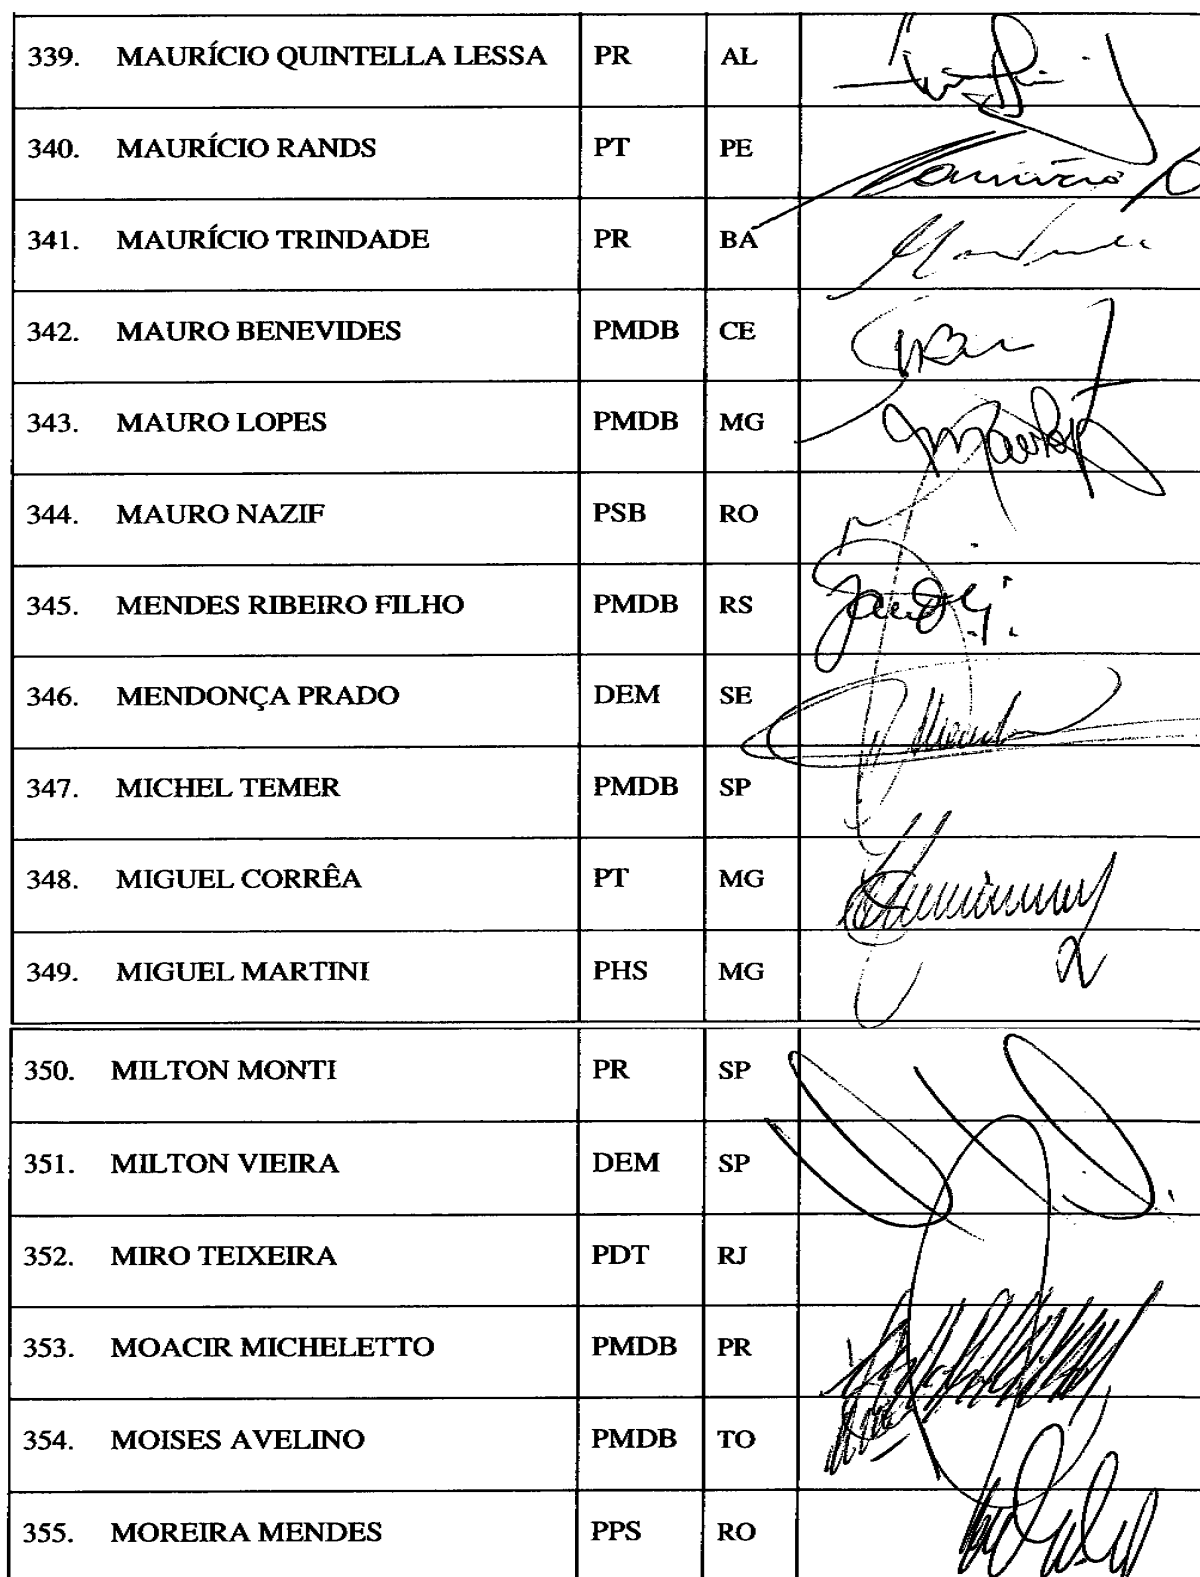 339. MAURÍCIO QUINTELLA LESSA PR AL
340. MAURÍCIO RANDS PT PE
341. MAURÍCIO TRINDADE PR BA
342. MAURO BENEVIDES PMDB CE
343. MAURO LOPES PMDB MG
344. MAURO NAZIF PSB RO
345. MENDES RIBEIRO FILHO PMDB RS
346. MENDONÇA PRADO DEM SE
347. MICHEL TEMER PMDB SP
348. MIGUEL CORRÊA PT MG
349. MIGUEL MARTINI PHS MG
350. MILTON MONTI PR SP
351. MILTON VIEIRA DEM SP
352. MIRO TEIXEIRA PDT RJ
353. MOACIR MICHELETTO PMDB PR
354. MOISES AVELINO PMDB TO
355. MOREIRA MENDES PPS RO